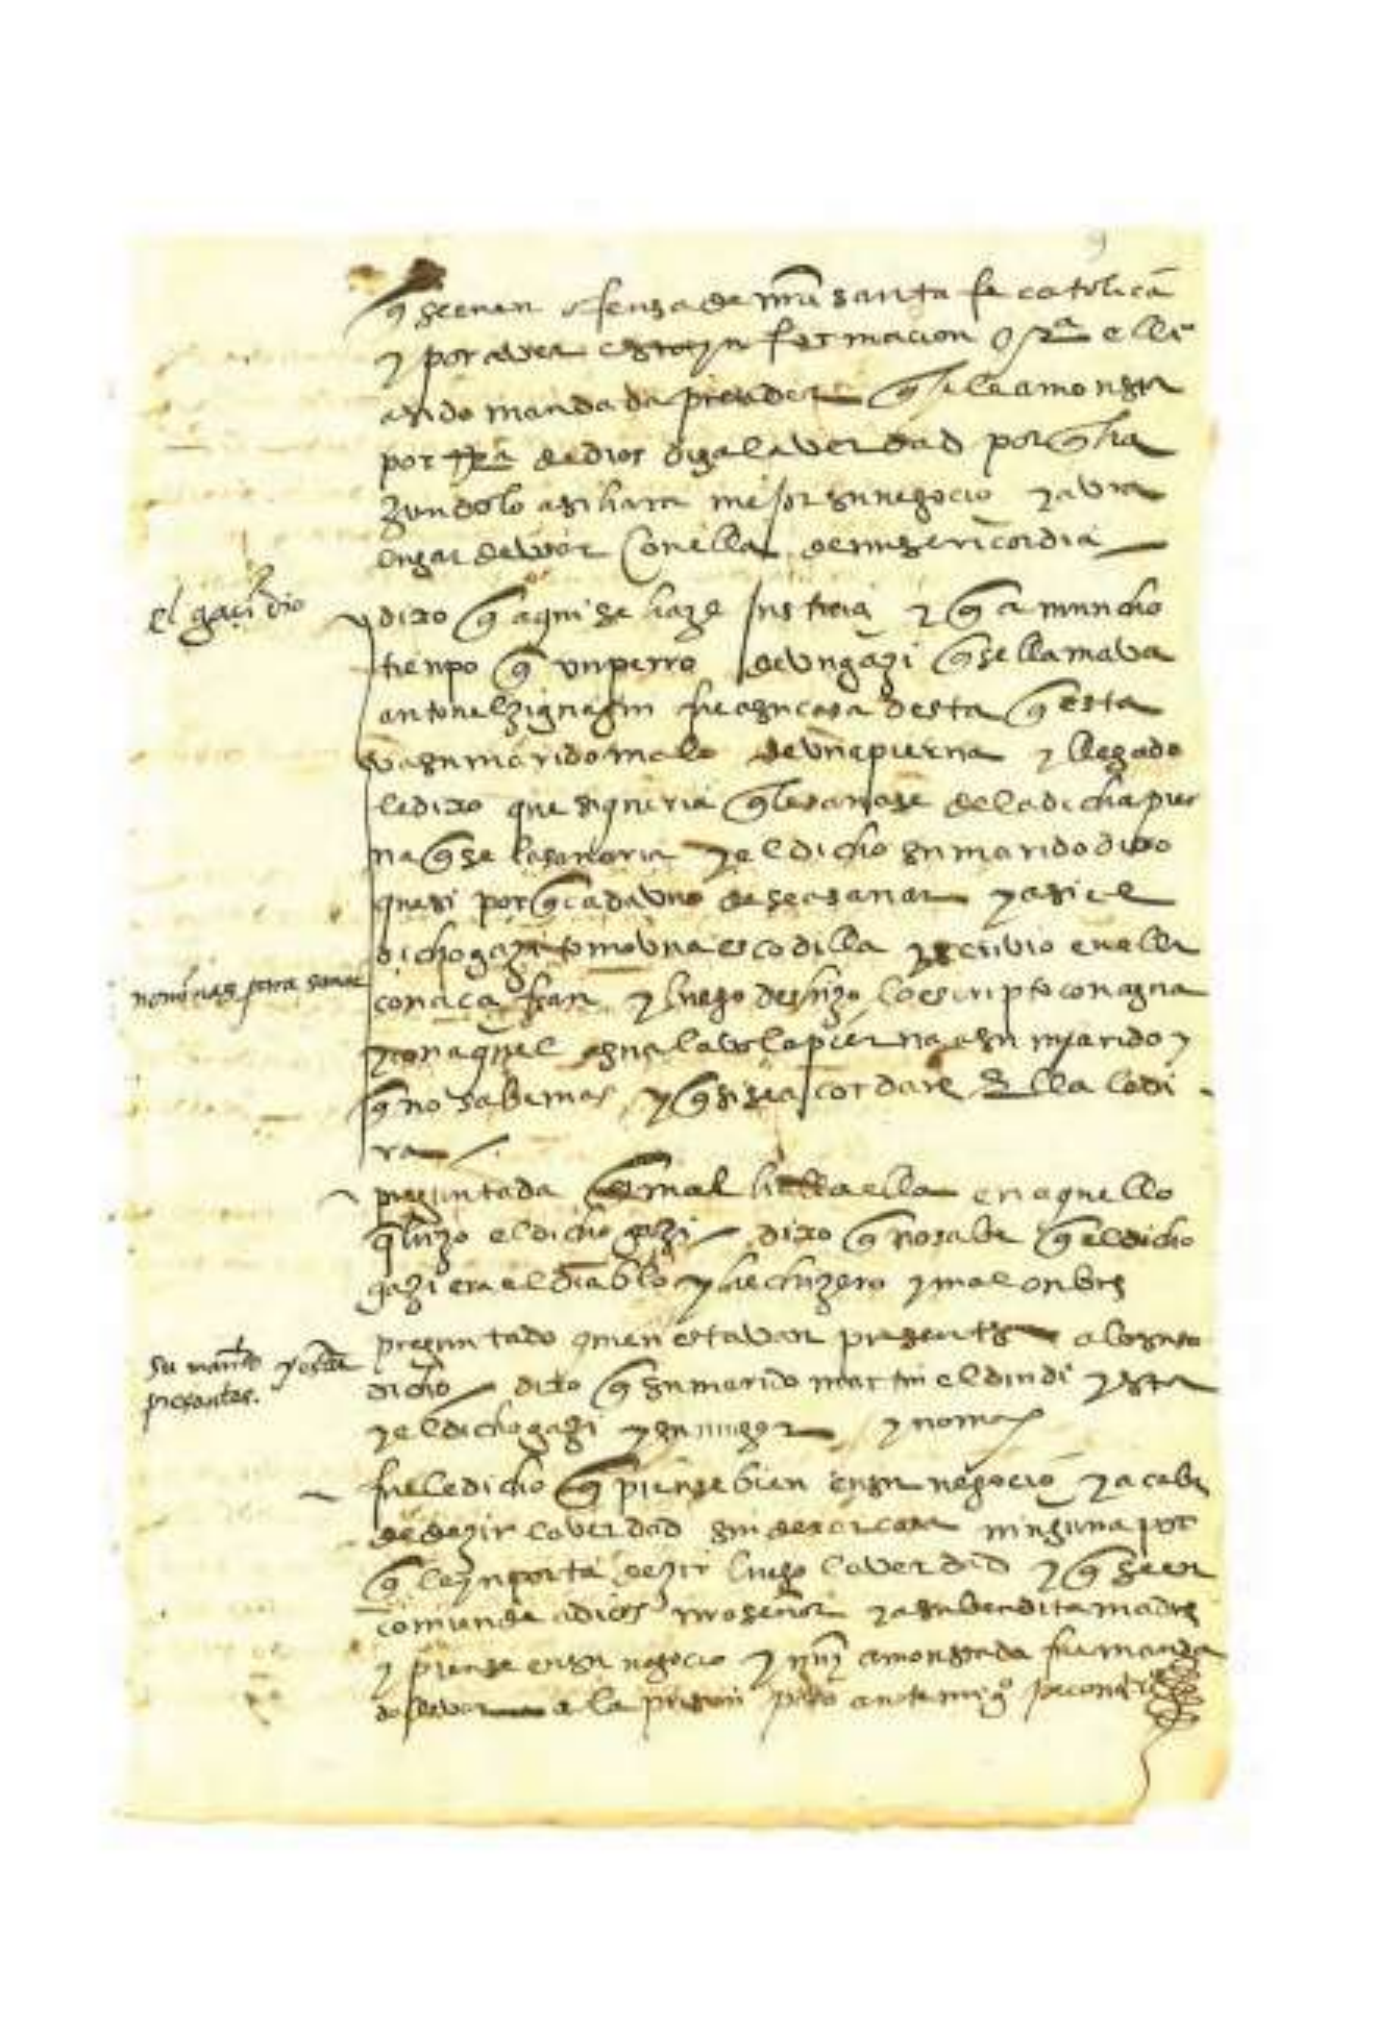 q seenen ofensa de nrã santa fe catolica
y por aver ynformacion cª ella
asido mandada prender q se le amonesta
por rª de dios diga la verdad por q ha
ziendolo asi hara mejor su negocio y avra
lugar de usar con ella de misericordia
el gaçi dio
dixo q aqui se haze justicia y q a muncho
tienpo q un perro de un gazi q se llamava
anton el fue a su casa desta q esta
va su marido malo de una pierna y llegado
le dixo que si queria q le sanase de la dicha pier
na q se la sanaria y el dicho su marido dixo
que si por q cada uno desea sanar y asi el
dicho gazi tomo una escodilla y escrivio en ella
nominas para sanar
con açafran y luego deshizo lo escripto con agua
y con aquel agua lavo la pierna a su marido y
q no sabe mas y q si se acordare ella lo di
ra
preguntada q mal hallaella en aquello
q hizo el dicho gazi dixo q no sabe q el dicho
gazi era el diablo y hechizero y mal onbre
preguntado quien estavan presentes a lo suso
su marido y esta presentes.
dicho dixo q su marido martin el dindi y esta
y el dicho gazi y su muger y no mas
fuele dicho q piense bien en su negocio y acabe
de dezir la verdad sin dexar cosa ninguna por
q le ynporta dezir luego la verdad y q se en
comiende a dios nro señor y a su bendita madre
y piense en su negocio y amonestada fue manda
do llevar a la prision paso ante mi